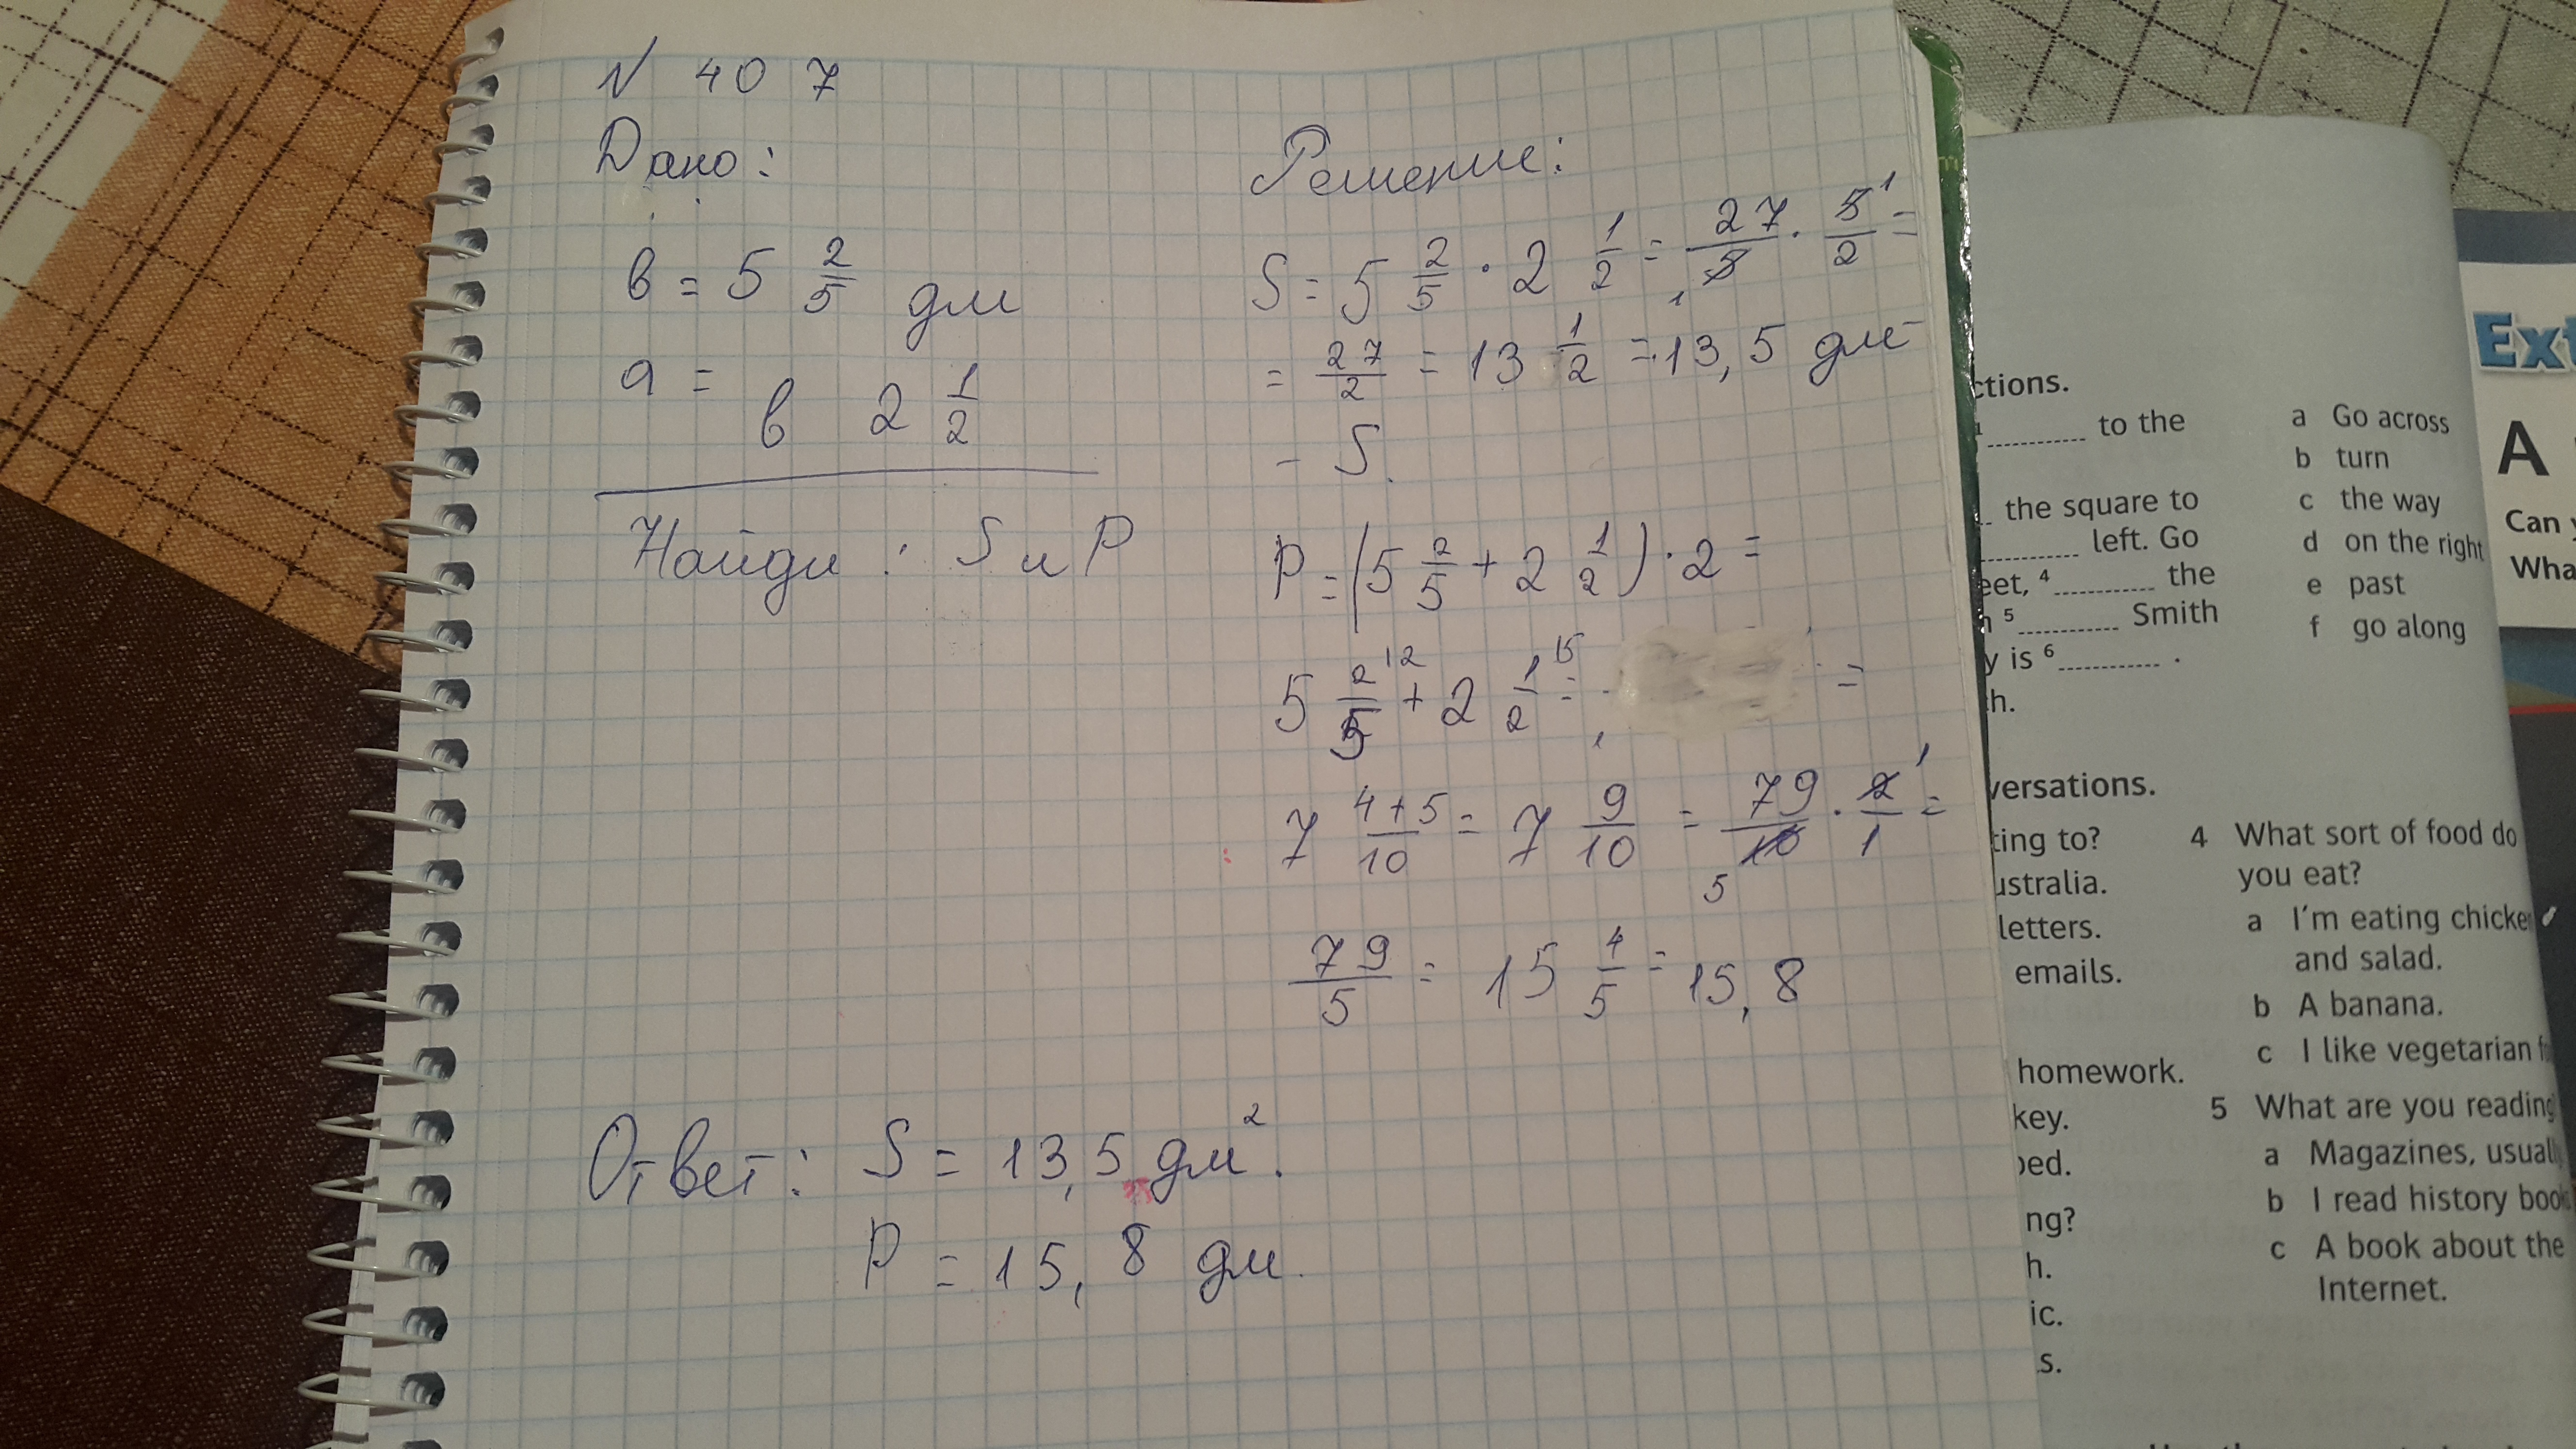 N 407
Дано:
в = 5 2/5 дм
а =
в 2 1/2
Найди : S и P
Решение:
S = 5 2/5 · 2 1/2 = 27/5 · 5/2 =
1 1
= 27/2 = 13 1/2 = 13,5 дм
- S.
P = (5 2/5 + 2 1/2) · 2 =
5 2/5 + 2 1/2 = =
7 4+5/10 = 7 9/10 = 79/10 · 2/1 =
5 1
79/5 = 15 4/5 = 15,8
Ответ: S = 13,5 дм².
P = 15,8 дм.
ctions.
to the
the square to
left. Go
eet, 4 the
5 Smith
y is 6 .
h.
a Go across
b turn
c the way
d on the right
e past
f go along
versations.
ting to?
ustralia.
letters.
emails.
homework.
key.
bed.
ng?
h.
ic.
s.
4 What sort of food do
you eat?
a I'm eating chicke
and salad.
b A banana.
c I like vegetarian f
5 What are you reading
a Magazines, usuall
b I read history boo
c A book about the
Internet.
Ext
A
Can y
Wha